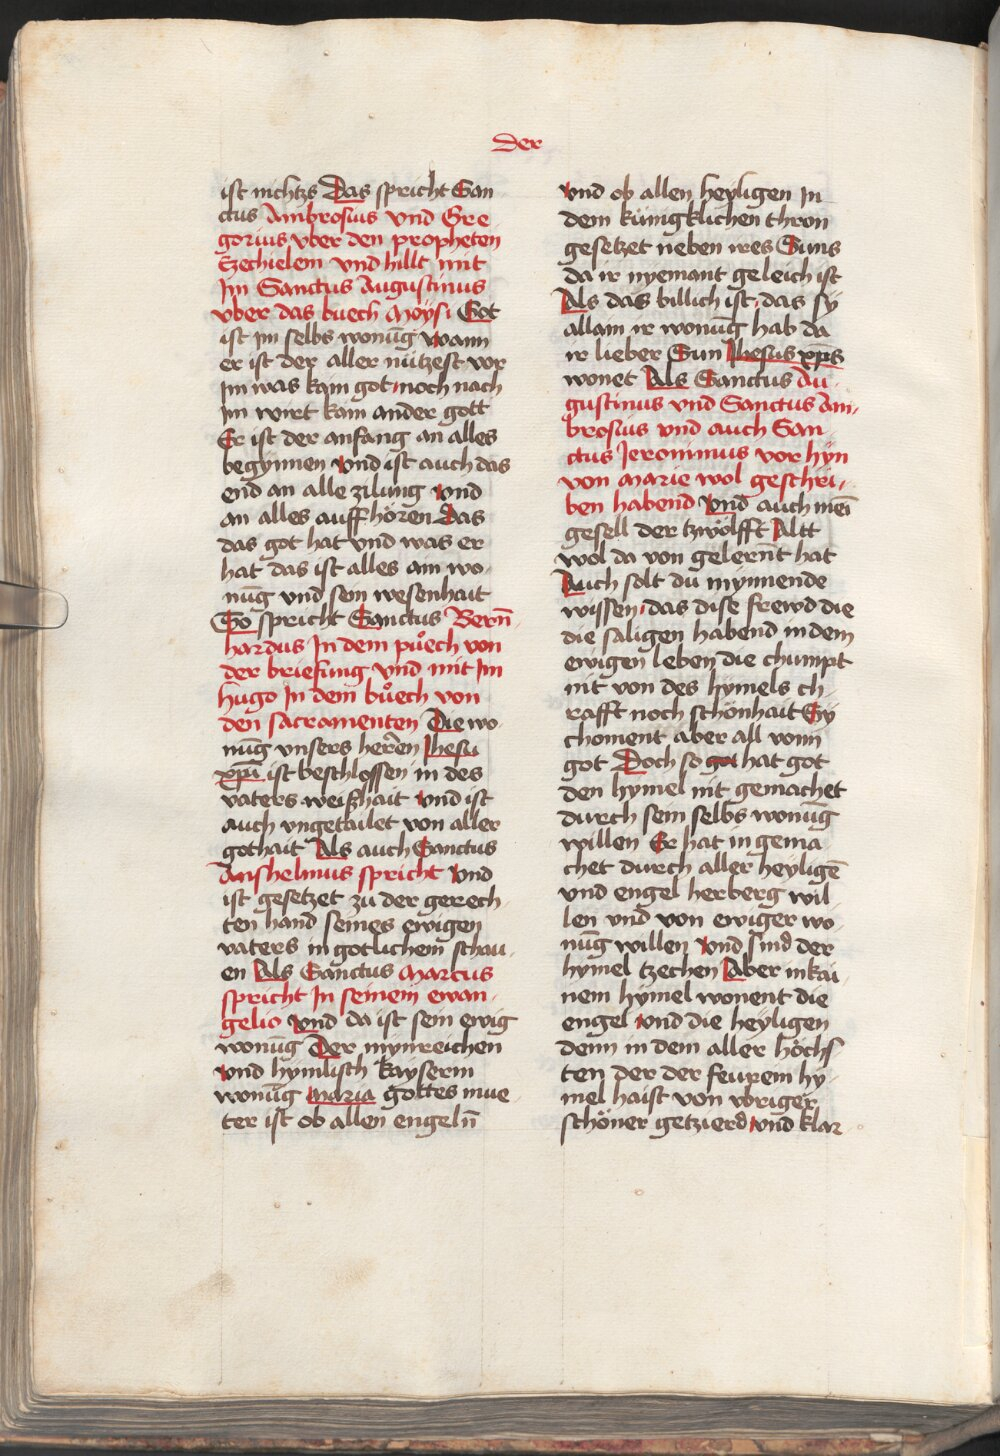 der
ist nichtzs Das spricht San
ctus Ambrosius vnd Gre
gorius vber den propheten
Ezechielem vnd hillt mit
Im Sanctus Augustinus
vber das buech Moysi Got
ist im selbs wonūg wann
er ist der aller nützest vor
Im was kain got noch nach
Im wirt kain ander gott
Er ist der anfang an alles
begynnen vnd ist auch das
end an alle zilung vnd
an alles auffhören Das
das got hat vnd was er
hat das ist alles ain wo-
nūg vnd sein wesenhait
So spricht Sanctus Bern̄
hardus In dem pu̇ech von
der briefung vnd mit Im
hugo In dem bůech von
den sacramenten Die wo-
nūg vnsers herren Jhesu
xp̄i ist beschlossen in des
vaters weißhait vnd ist
auch vngetailet von aller
gothait Als auch Sanctus
Anshelmus spricht vnd
ist gesetzet zu der gerech-
ten hand seines ewigen
vaters in gotlichem schau-
en Als Sanctus Marcus
spricht In seinem ewan-
gelio vnd da ist sein ewig
wonūg Der mynreichen
vnd hymlisch kayserin
wonūg Maria gottes mue-
ter ist ob allen engeln̄
vnd ob allen heyligen In
dem künigklichen thron
gesetzet neben ires Suns
da ir nyemant geleich ist
Als das billich ist das sy
allain ir wonūg hab da
ir lieber Sun Jhesus xp̄s
wonet Als Sanctus Au-
gustinus vnd Sanctus Am-
brosius vnd auch San-
ctus Jeronimus vor hyn
von Marie wol geschri-
ben habend Vnd auch mei
gesell der tzwölfft Altt
wol da von gelernt hat
Auch solt du mynnende
wissen das dise frewd die
die saligen habend in dem
ewigen leben die chumpt
nit von des hymels ch-
rafft noch schönhait Sy
choment aber all vonn
got Doch so got hat got
den hymel nit gemachet
durch sein selbs wonūg
willen Er hat in gema
chet durch aller heyligē
vnd engel herberg wil-
len vnd von ewiger wo-
nūg willen vnd sind der
hymel tzechen Aber in kai-
nem hymel wonent die
engel vnd die heyligen
denn in dem aller höchs-
ten der der feurein hy-
mel haist von vbriger
schöner getzierd vnd klar-